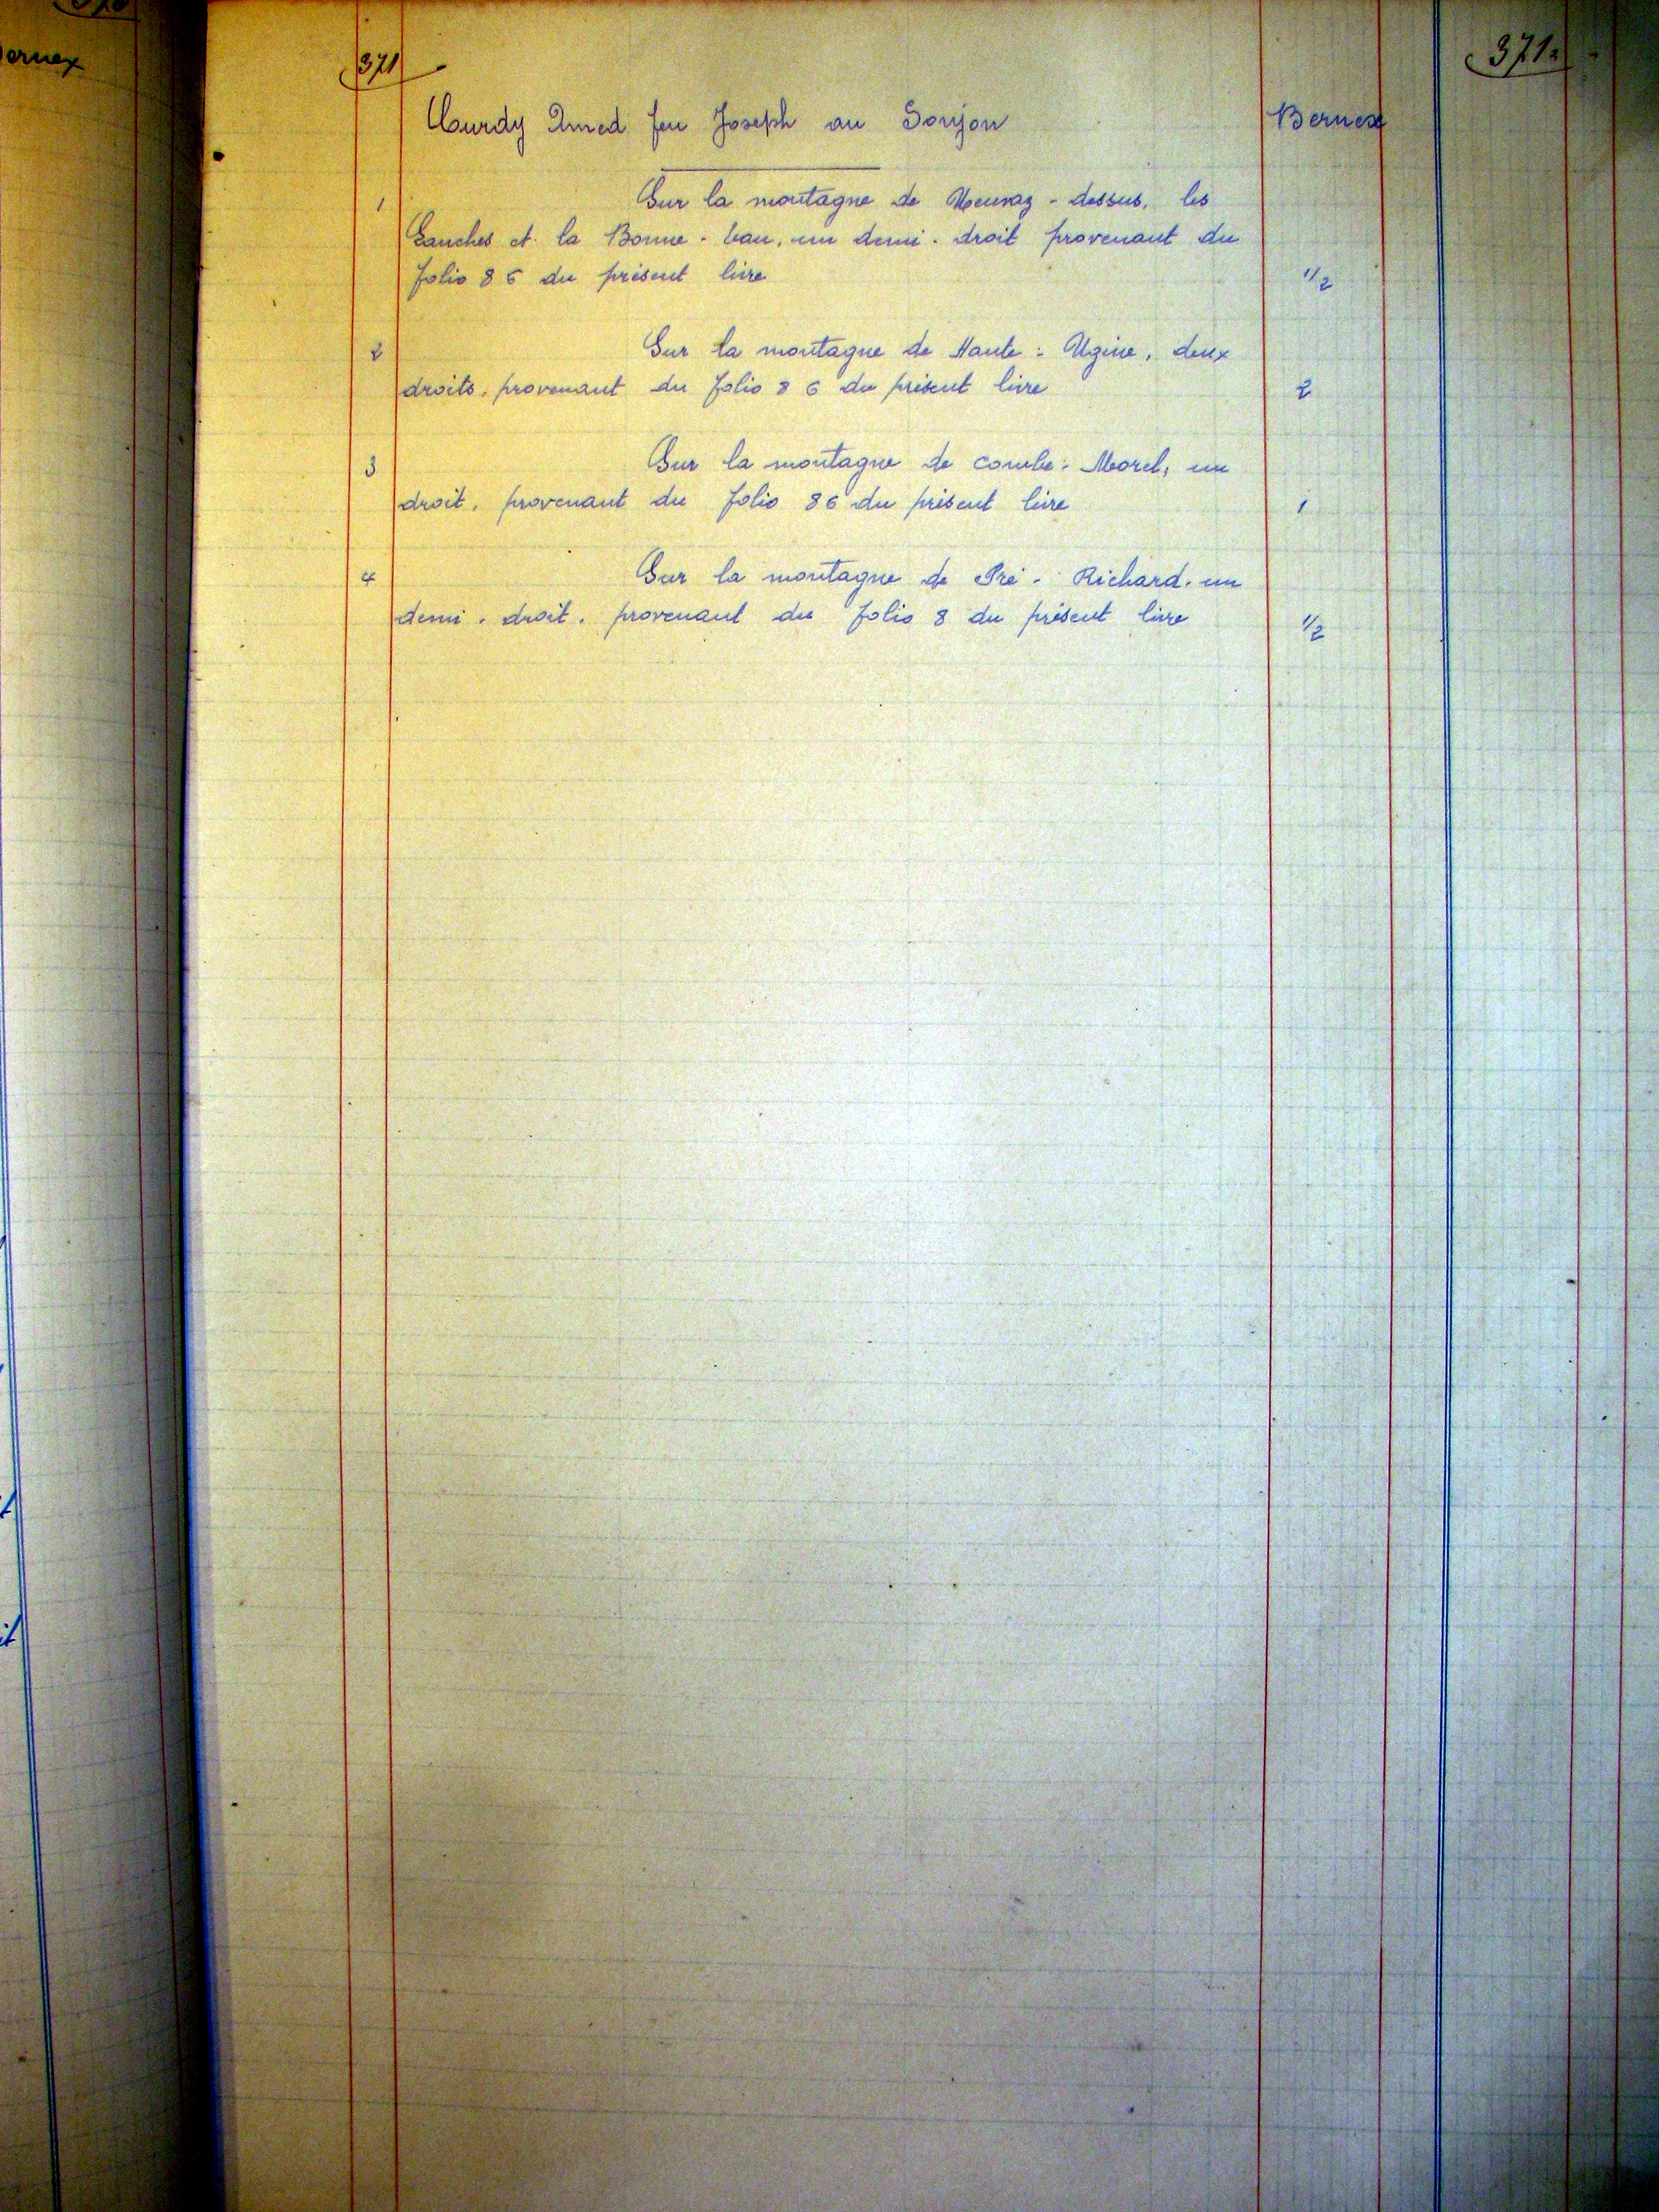 ernex
371
371
Curdy Amed feu Joseph au Donjon
Bernex
1
Sur la montagne de Neuvaz - dessus, les
Lanches et la Bonne - Eau, un demi - droit provenant du
folio 86 du présent livre
1/2
2
Sur la montagne de Haute - Ugine, deux
droits, provenant du folio 86 du présent livre
2
3
Sur la montagne de combe - Morel, un
droit, provenant du folio 86 du présent livre
1
4
Sur la montagne de Pré - Richard, un
demi - droit, provenant du folio 8 du présent livre
1/2